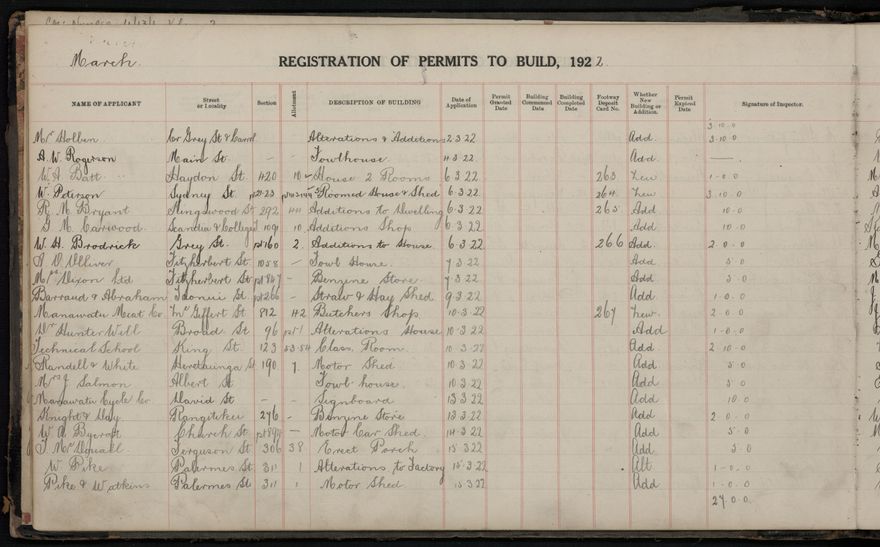 March.
REGISTRATION OF PERMITS TO BUILD, 1922
NAME OF APPLICANT Street or Locality Section Allotment DESCRIPTION OF BUILDING Date of Application Permit Granted Date Building Commenced Date Building Completed Date Footway Deposit Card No. Whether New Building or Addition. Permit Expired Date Signature of Inspector.
3.10.0
Mrs Holben Cr Grey St & Carrol Alterations & Additions 2.3.22 Add. 3.10.0
A. W. Rogerson Main St. — — Fowlhouse 4.3.22 Add. —
W. A. Batt Haydon St. 420 10 House 2 Rooms 6.3.22 263 New 1.0.0
W. Peterson Sydney St. Roomed House & Shed 6.3.22 264 New 3.10.0
R. M. Bryant Kingswood St 292 Additions to Dwelling 6.3.22 265 Add 10.0
G. M. Carwood Scandia & College 1091 10 Additions Shop 6.3.22 Add. 10.0
W. H. Brodrick Grey St. pt 160 2. Additions to House 6.3.22 266 Add. 2.0.0
Fitzherbert St. 1058 — Fowl House. 7.3.22 Add 5.0
Nixon Ltd Fitzherbert St. pt 847 — Benzine Store 7.3.22 Add 5.0
Barraud & Abraham Taonui St. pt 266 — Straw & Hay Shed 9.3.22 Add 1.0.0
Manawatu Meat Co. St 812 42 Butchers Shop 10.3.22 267 New. 2.0.0
Hunter Will Broad St 96 pt 1 Alterations House 10.3.22 Add 1.0.0
Technical School King St. 123 53.54 Class Room. 10.3.22 Add. 2.10.0
Randell & White Heretaunga St 190 7. Motor Shed 10.3.22 Add. 5.0
Mrs J Salmon Albert St Fowl house. 10.3.22 Add 5.0
Manawatu Cycle Co David St — Signboard 13.3.22 Add 10.0
Knight & Daly Rangitikei 276 — Benzine Store 13.3.22 Add 2.0.0
W. A. Bycroft Church St. pt 897 — Motor Car Shed. 14.3.22 Add 5.0
Ferguson St. 306 38 Erect Porch 15.3.22 Add 5.0
W Pike Palermes St. 311 1 Alterations to Factory 15.3.22 Alt. 1.0.0
Pike & Watkins Palermes St 311 1 Motor Shed 15.3.22 Add 1.0.0
27.0.0.